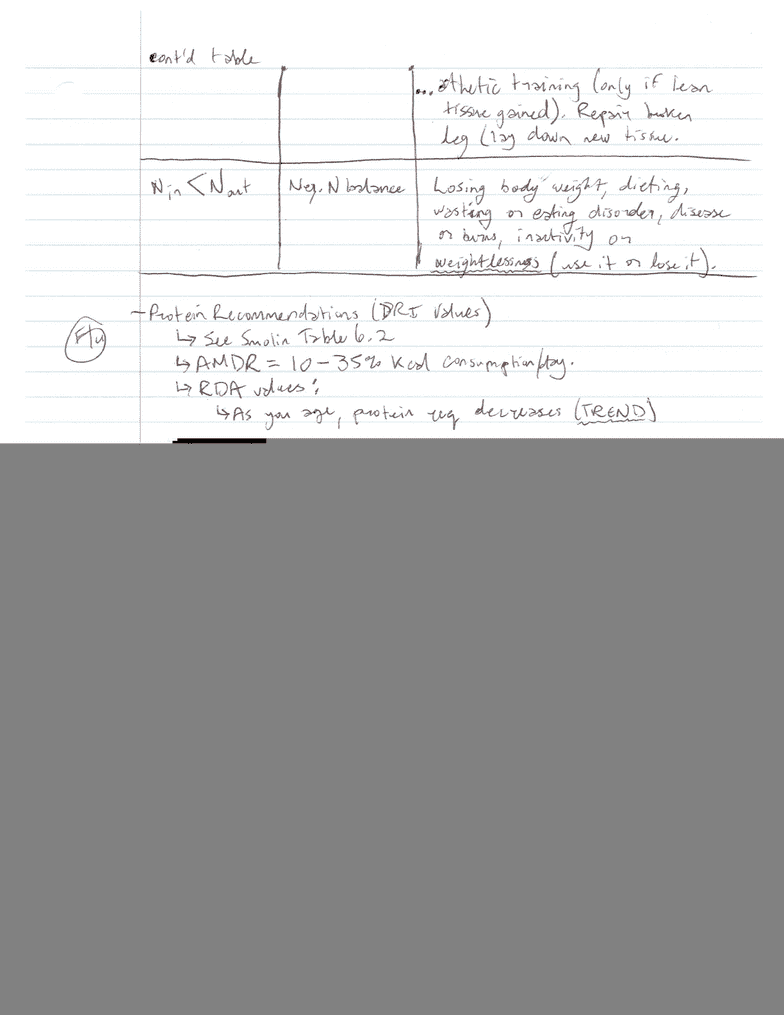 cont'd table
... athletic training (only if lean
tissue gained). Repair broken
leg (lay down new tissue.
Nin < Nout
Neg. N balance
Losing body weight, dieting,
wasting or eating disorder, disease
or burns, inactivity or
weightlessness (use it or lose it).
- Protein Recommendations (DRI values)
↳ See Smolin Table 6.2
↳ AMDR = 10-35% Kcal consumption/day.
↳ RDA values:
↳ As you age, protein req decreases (TREND)